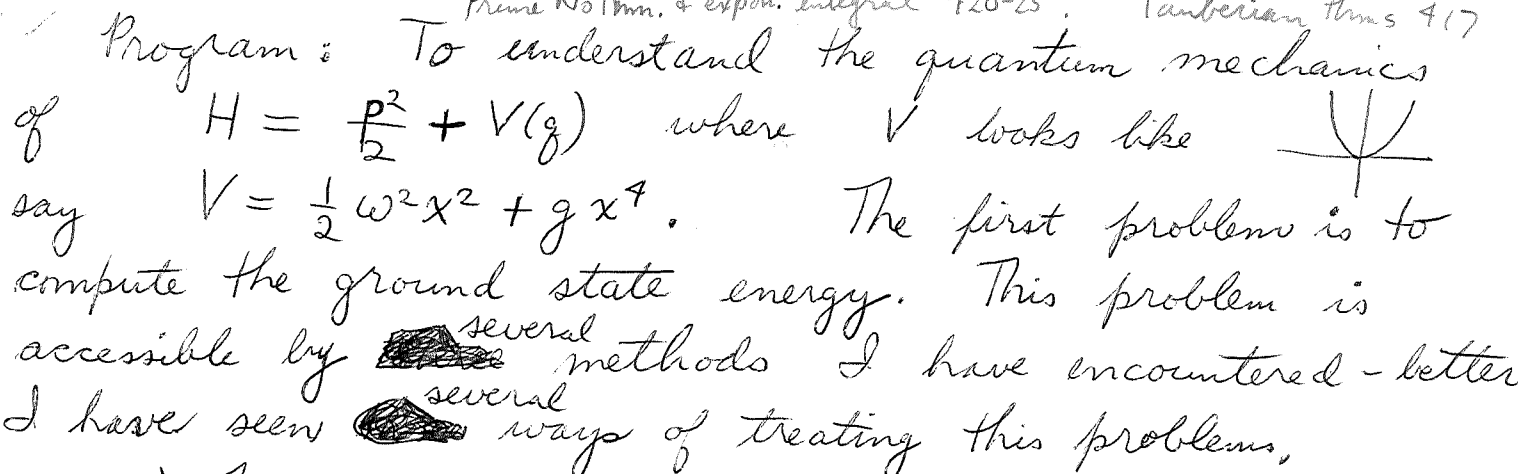 Prime No Thm. & expon. integral 420-25. Tauberian Thms 417
Program: To understand the quantum mechanics
of H = p²/2 + V(q) where V looks like
say V = ½ ω²x² + gx⁴. The first problem is to
compute the ground state energy. This problem is
accessible by several methods I have encountered – better
I have seen several ways of treating this problem.